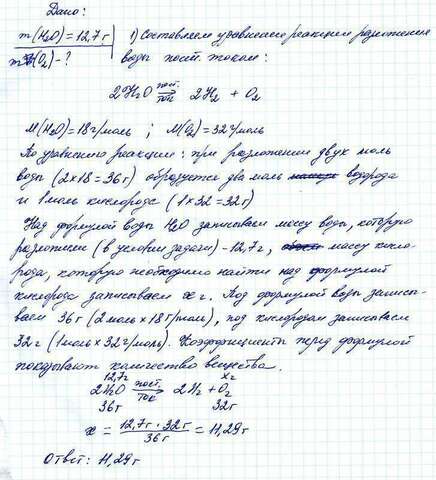 Дано:
m(H₂O) = 12,7 г
m(O₂) - ?
1) Составляем уравнение реакции разложения
воды пост. током:
2H₂O пост. ток → 2H₂ + O₂
M(H₂O) = 18 г/моль ; M(O₂) = 32 г/моль
По уравнению реакции: при разложении двух моль
воды (2×18 = 36 г) образуется два моль водорода
и 1 моль кислорода (1×32 = 32 г)
Над формулой воды H₂O записываем массу воды, которую
разложили (в условии задачи) - 12,7 г, массу кисло-
рода, которую необходимо найти над формулой
кислорода записываем x г. Под формулой воды записы-
ваем 36 г (2 моль × 18 г/моль), под кислородом записываем
32 г (1 моль × 32 г/моль). Коэффициенты перед формулой
показывают количество вещества.
12,7 г x г
2H₂O пост. ток → 2H₂ + O₂
36 г 32 г
x = 12,7 г · 32 г / 36 г = 11,29 г
Ответ: 11,29 г